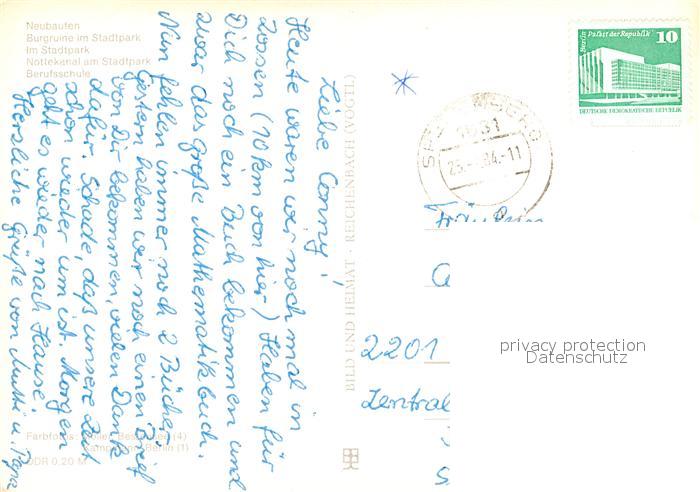 Neubauten
Burgruine im Stadtpark
Im Stadtpark
Nottekanal am Stadtpark
Berufsschule
Liebe Conny!
Heute waren wir noch mal in
Zossen (10 km von hier) Haben für
Dich noch ein Buch bekommen und
zwar das große Mathematikbuch.
Nun fehlen immer noch 2 Bücher,
Gestern haben wir noch einen Brief
von Dir bekommen, vielen Dank
dafür. Schade, daß unsere Zeit
schon wieder um ist. Morgen
geht es wieder nach Hause.
Herzliche Grüße von Mutti u. Papa
Farbfotos:
Berlin (1)
DDR 0,20 M
BILD UND HEIMAT · REICHENBACH (VOGTL)
Berlin Palast der Republik 10
DEUTSCHE DEMOKRATISCHE REPUBLIK
1631
84-11
Fräulein
2201
Zentral
privacy protection
Datenschutz